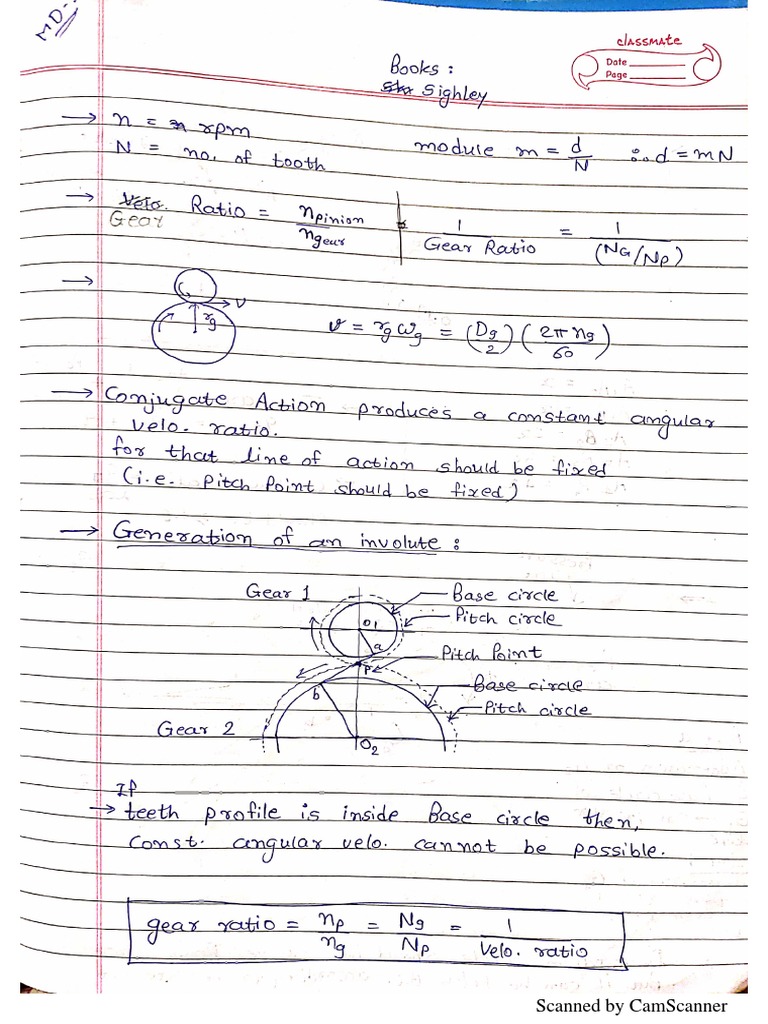 MD-
classmate
Date
Page
Books :
Sighley
→ n = rpm
N = no. of tooth
module m = d/N ∴ d = mN
→ Velo. Ratio = n pinion / n gear = 1 / Gear Ratio = 1 / (NG/NP)
Gear
→ V
rg
v = rg ωg = (Dg/2) (2π ng/60)
→ Conjugate Action produces a constant angular
velo. ratio.
for that line of action should be fixed
(i.e. Pitch Point should be fixed)
→ Generation of an involute :
Gear 1
Base circle
Pitch circle
O1
a
Pitch Point
P
b
Base circle
Pitch circle
Gear 2
O2
If
→ teeth profile is inside Base circle then,
const. angular velo. cannot be possible.
gear ratio = np/ng = Ng/Np = 1 / Velo. ratio
Scanned by CamScanner